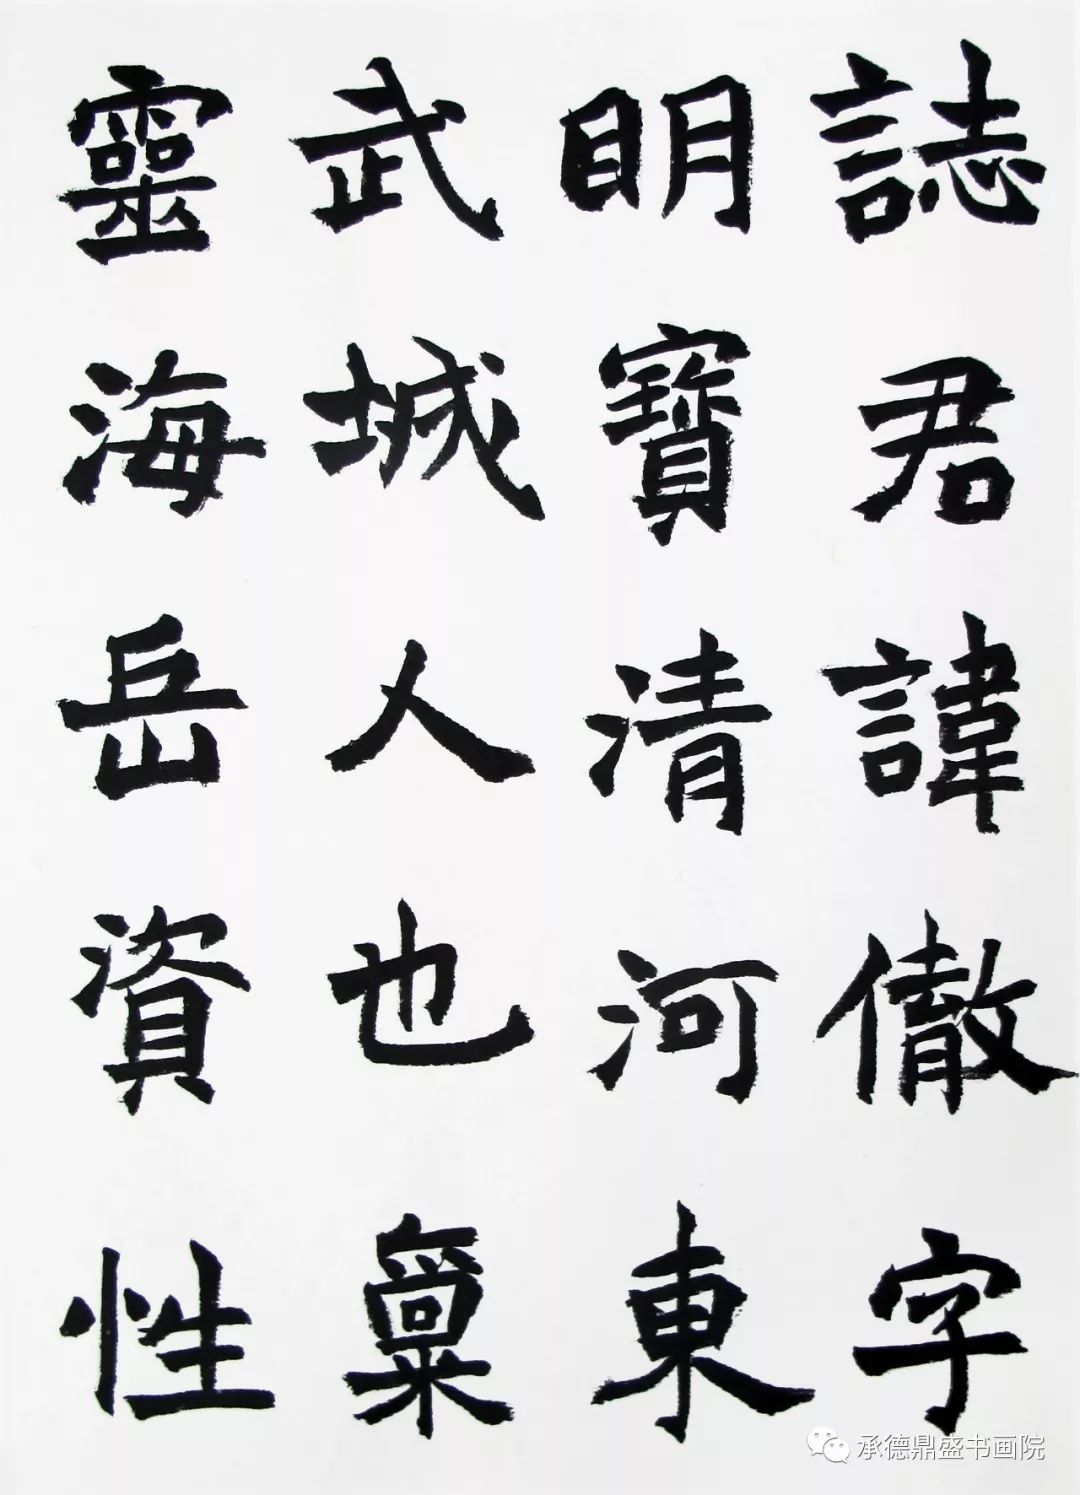 誌君諱徹字
明寶清河東
武城人也稟
靈海岳資性
承德鼎盛书画院